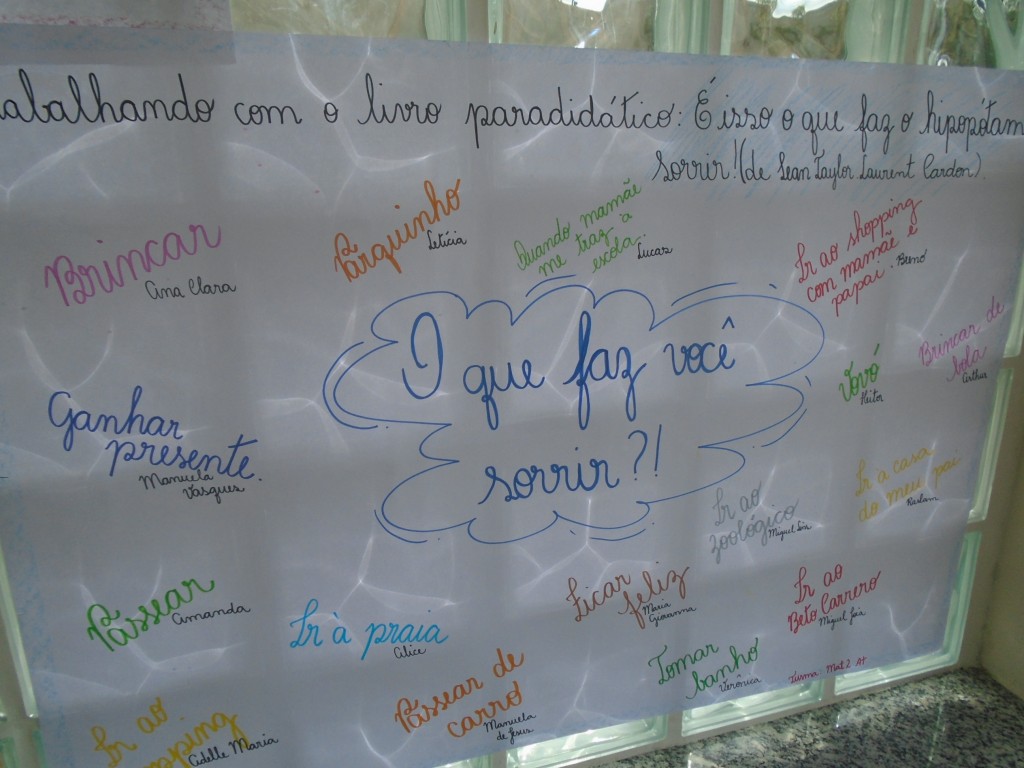 abalhando com o livro paradidático: É isso o que faz o hipopótam
sorrir! (de Sean Taylor Laurent Cardon).
Brincar
Ana Clara
Parquinho
Letícia
Quando mamãe
me traz à
escola.
Lucas
Ir ao shopping
com mamãe e
papai.
Breno
O que faz você
sorrir?!
Brincar de
bola
Arthur
Vovó
Heitor
Ganhar
presente.
Manuela
Vasques
Ir a casa
do meu pai
Ir ao
zoológico
Miguel
Ficar
feliz
Maria
Giovanna
Ir ao
Beto Carrero
Miguel
Passear
Amanda
Ir à praia
Alice
Tomar
banho
Verônica
Passear de
carro
Manuela
de Jesus
Ir ao
pping
Cidelle Maria
Turma Mat 2 At